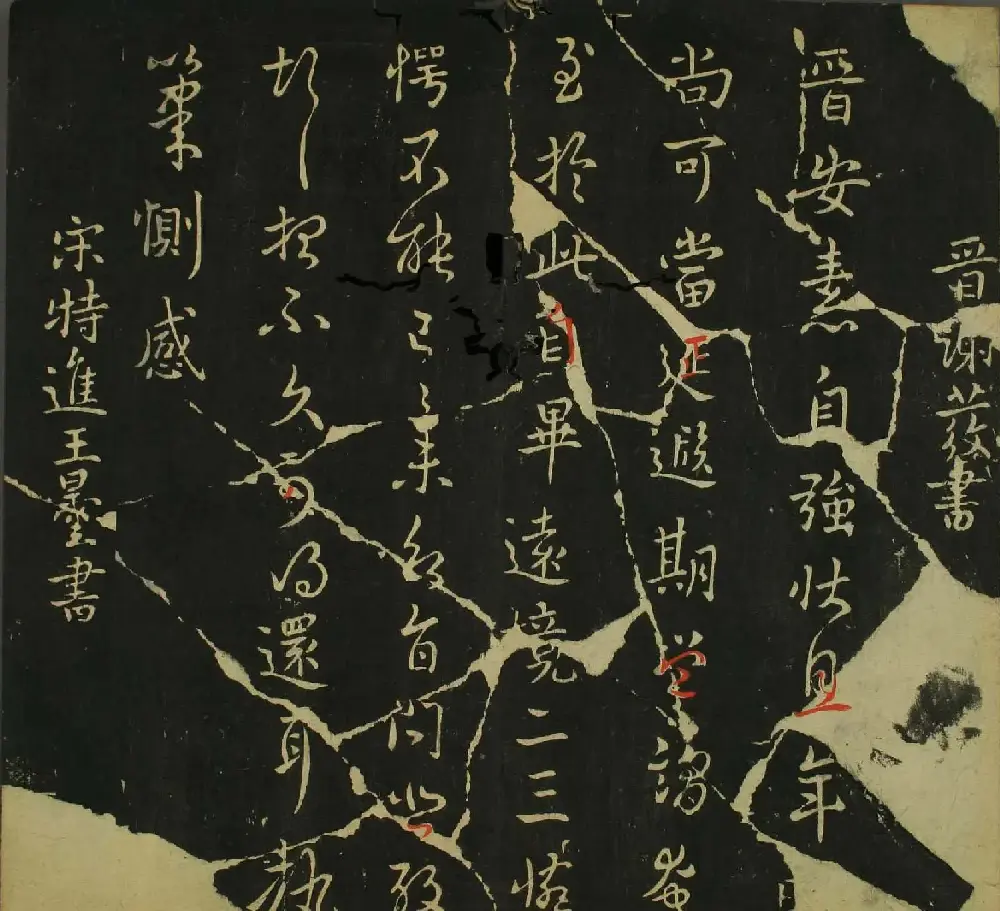 晉謝發書
晉安素自強壯且年
尚可當延遐期豈謂奄
至於此省畢遠境二三
愕不能已已未敘旨問
想不久可得還耳執
筆惻感
宋特進王曇書